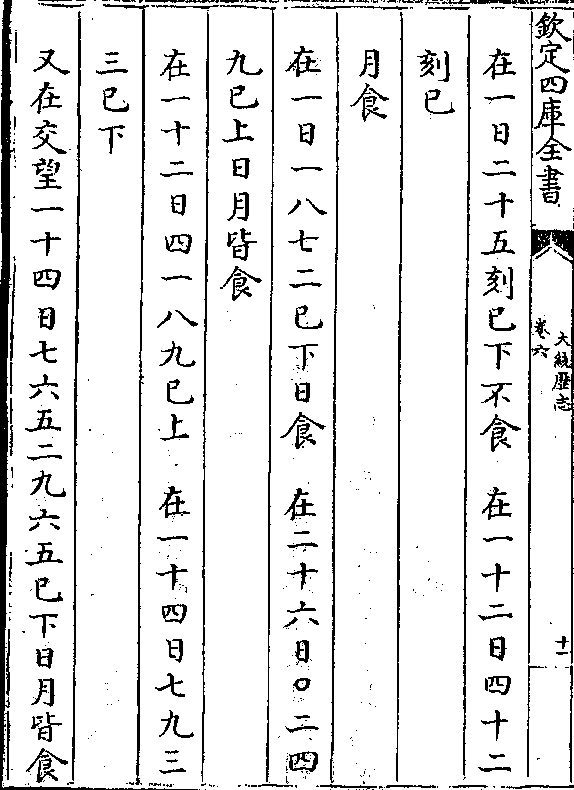 欽定四庫全書
大統歷志
卷六
十一
在一日二十五刻已下不食　在一十二日四十二
刻已
月食
在一日一八七二已下日食　在二十六日〇二四
九已上日月皆食
在一十二日四一八九已上　在一十四日七九三
三已下
又在交望一十四日七六五二九六五已下日月皆食